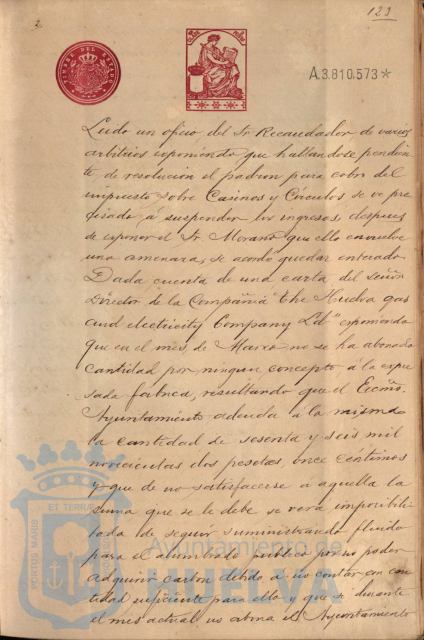 2
123
TIMBRE DEL ESTADO
A.3.810.573*
Leido un oficio del Sr Recaudador de varios
arbitrios exponiendo que hallandose pendien
te de resolución el padron para cobro del
impuesto sobre Casinos y Círculos, se ve pre
cisado á suspender los ingresos despues
de exponer el Sr Morano que ello envuelve
una amenaza, se acordó quedar enterado.
Dada cuenta de una carta del Señor
Director de la Compañia "The Huelva gas
and electricity Company Ld" exponiendo
que en el mes de Marzo no se ha abonado
cantidad por ningun concepto á la expre
sada fabrica, resultando que el Excmo.
Ayuntamiento adeuda á la misma
la cantidad de sesenta y seis mil
novecientas dos pesetas, once céntimos
y que de no satisfacerse á aquella la
suma que se le debe se verá imposibili
tada de seguir suministrando fluido
para el alumbrado público por no poder
adquirir carbon debido á no contar con can
tidad suficiente para ello y que si durante
el mes actual no abona el Ayuntamiento
PORTUS MARIS ET TERRAE
Ayuntamiento de
HUELVA